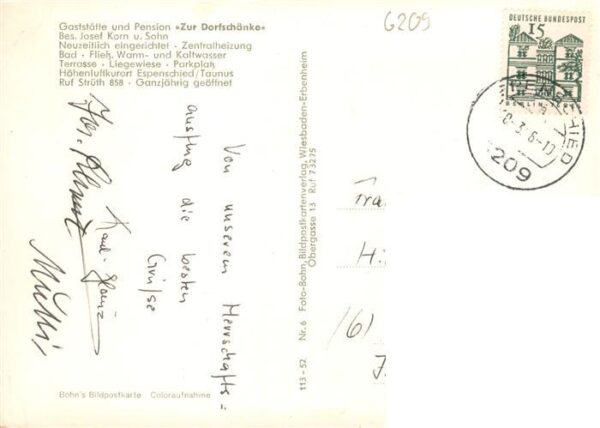 Gaststätte und Pension «Zur Dorfschänke»
Bes. Josef Korn u. Sohn
Neuzeitlich eingerichtet · Zentralheizung
Bad · Fließ. Warm- und Kaltwasser
Terrasse · Liegewiese · Parkplatz
Höhenluftkurort Espenschied/Taunus
Ruf Strüth 858 · Ganzjährig geöffnet
6209
DEUTSCHE BUNDESPOST
15
BERLIN
209
Von unserem Herrschafts=
ausflug die besten
Grüße
Karl-Heinz
113-52 Nr. 6 Foto-Bohn, Bildpostkartenverlag, Wiesbaden-Erbenheim
Obergasse 13 Ruf 73275
(6)
Bohn's Bildpostkarte Coloraufnahme